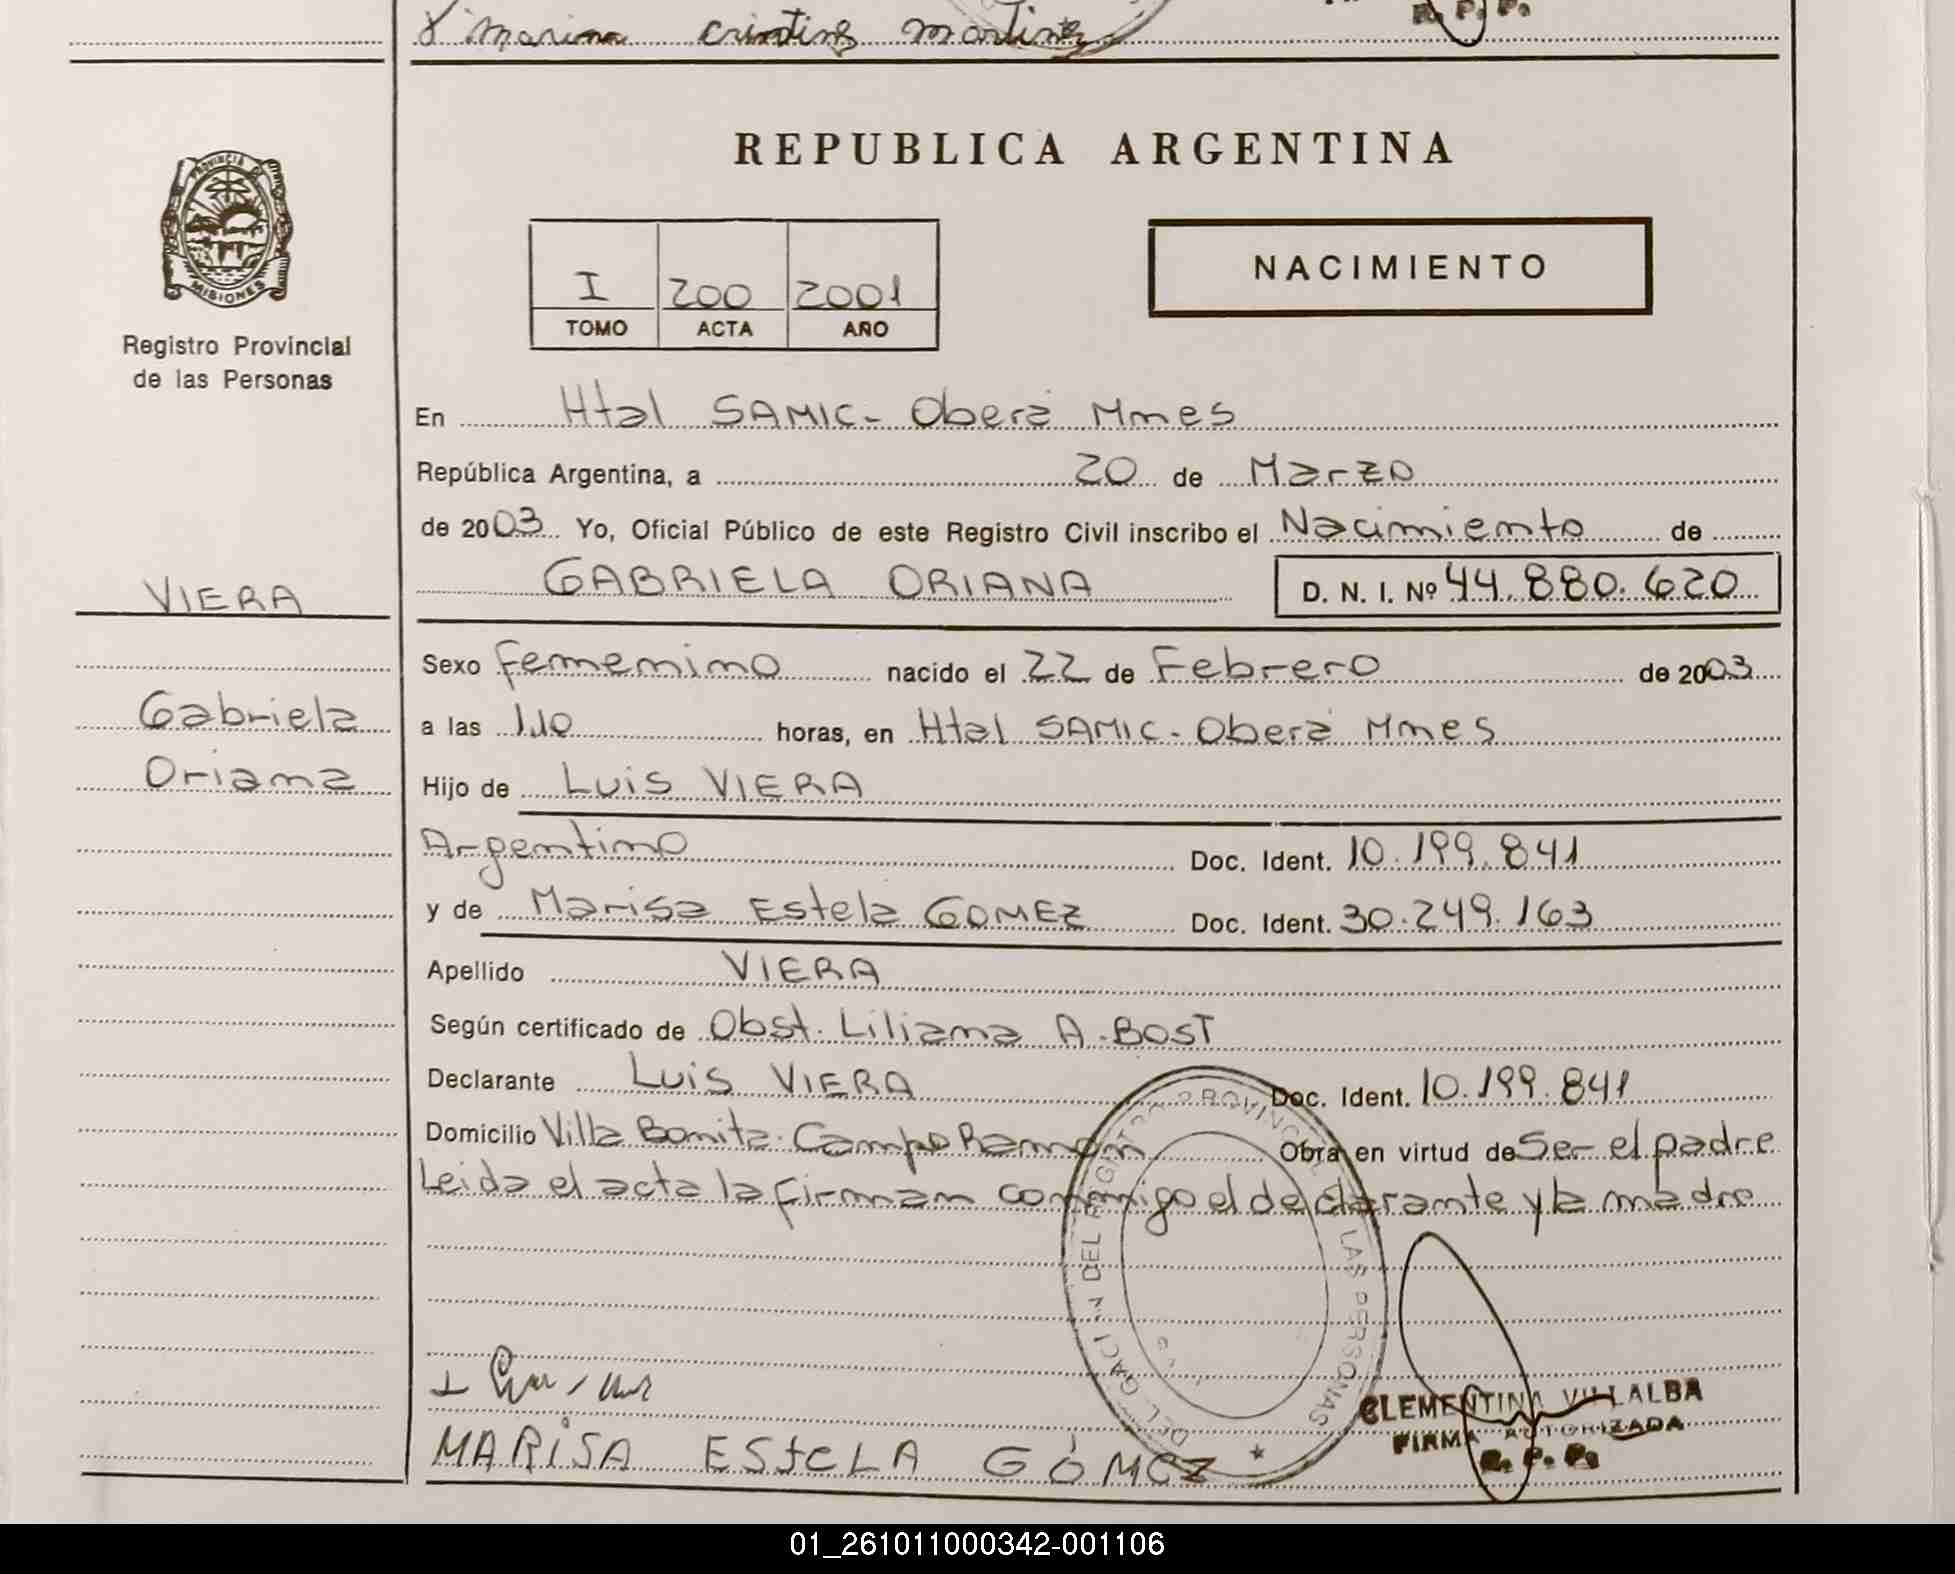 marina cristina martinez
R. P. P.
REPUBLICA ARGENTINA
PROVINCIA DE
MISIONES
Registro Provincial
de las Personas
NACIMIENTO
I 200 2001
TOMO ACTA AÑO
En Htal SAMIC - Oberá Mnes
República Argentina, a 20 de Marzo
de 2003 Yo, Oficial Público de este Registro Civil inscribo el Nacimiento de
VIERA
GABRIELA ORIANA D. N. I. Nº 44.880.620
Sexo femenino nacido el 22 de Febrero de 2003
Gabriela
a las 1.10 horas, en Htal SAMIC - Oberá Mnes
Oriana
Hijo de Luis VIERA
Argentino Doc. Ident. 10.199.841
y de Marisa Estela GOMEZ Doc. Ident. 30.249.163
Apellido VIERA
Según certificado de Obst. Liliana A. BOST
Declarante Luis VIERA Doc. Ident. 10.199.841
Domicilio Villa Bonita - Campo Ramon Obra en virtud de Ser el padre
Leida el acta la firman conmigo el declarante y la madre
DEL REGISTRO PROVINCIAL LAS PERSONAS
MARISA EStELA GÓMEZ
CLEMENTINA VILLALBA
FIRMA AUTORIZADA
R. P. P.
01_261011000342-001106